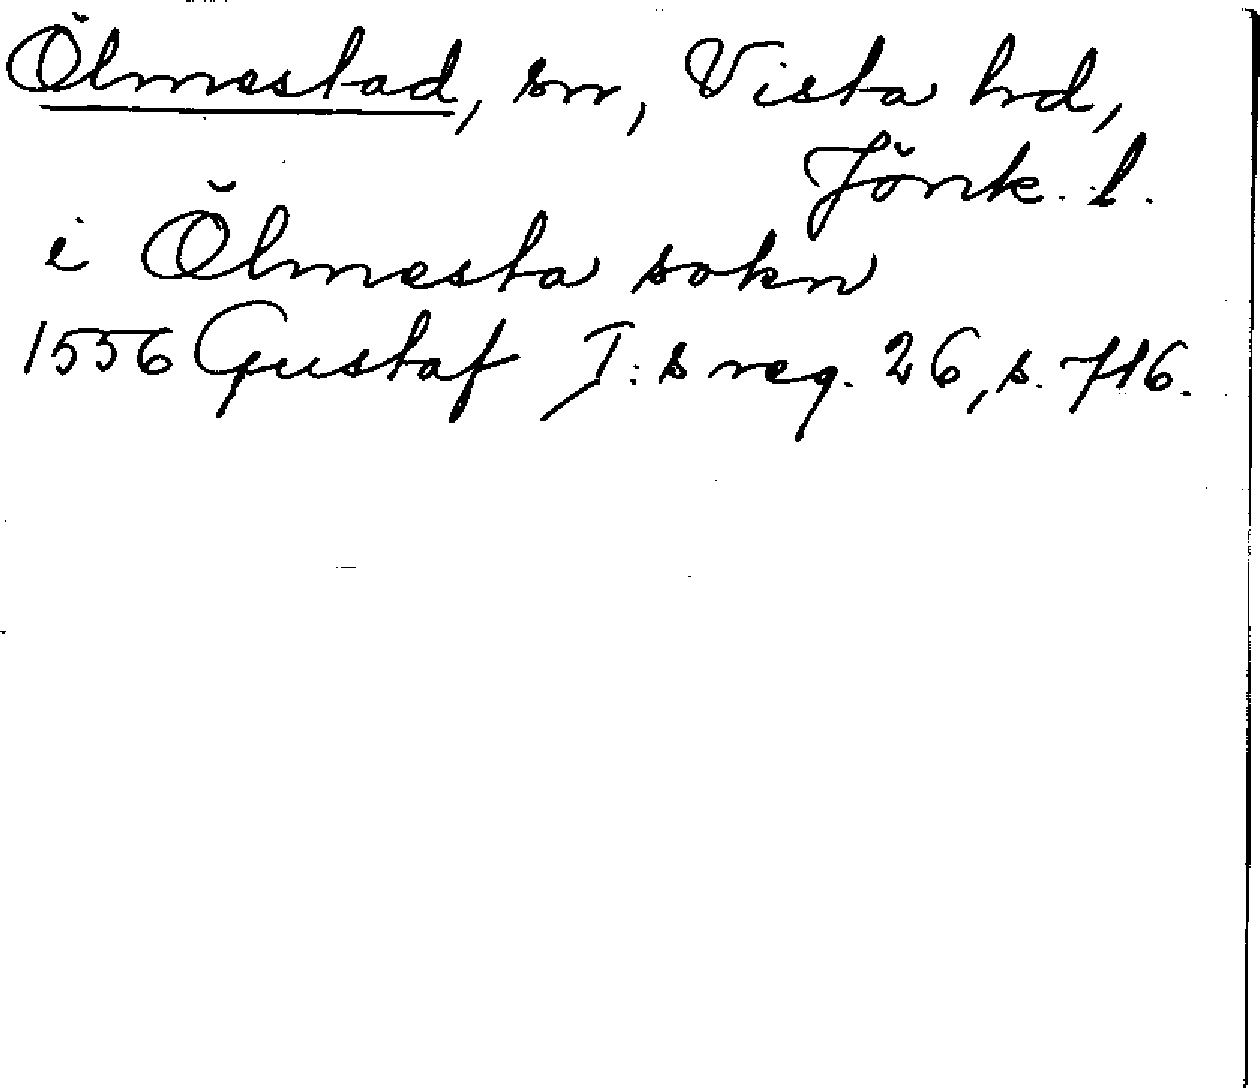 Ölmestad, sn, Vista hd,
Jönk. l.
i Ölmesta sokn
1556 Gustaf I:s reg. 26, s. 716.